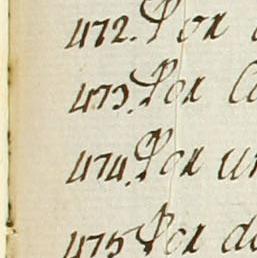 472. Por
473. Por
474. Por un
475 Por de